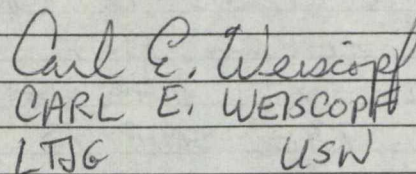 Carl E. Weiscopf
CARL E. WEISCOPF
LTJG USN